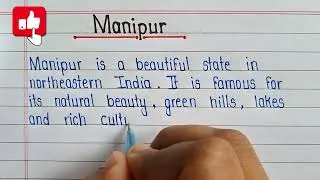 Manipur
Manipur is a beautiful state in
northeastern India. It is famous for
its natural beauty, green hills, lakes
and rich cultu